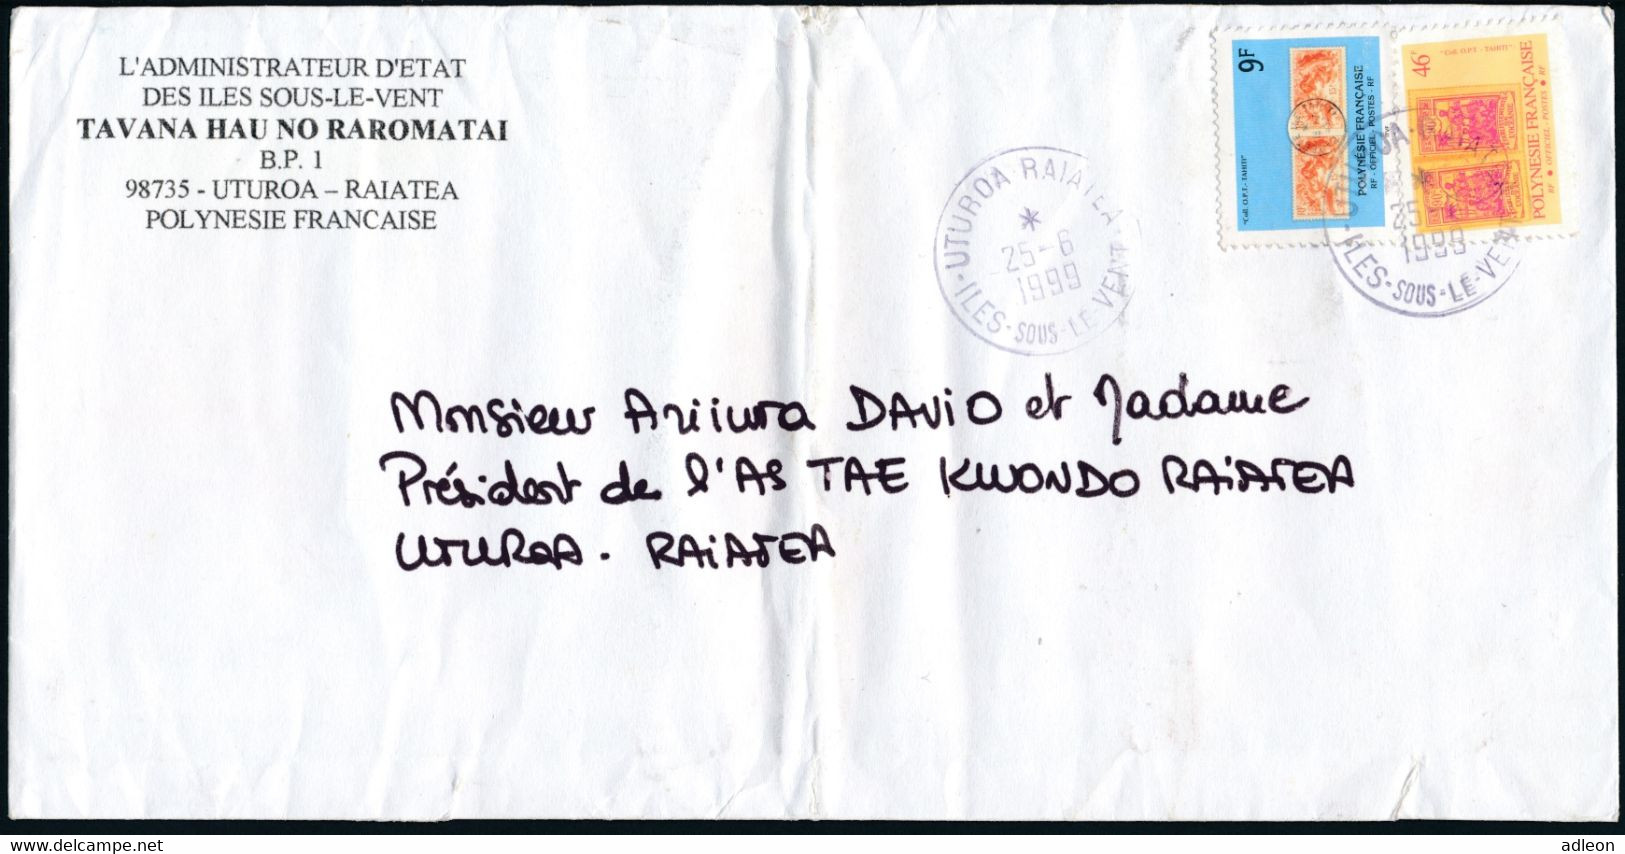 L'ADMINISTRATEUR D'ETAT
DES ILES SOUS-LE-VENT
TAVANA HAU NO RAROMATAI
B.P. 1
98735 - UTUROA – RAIATEA
POLYNESIE FRANCAISE
9F
"Coll. O.P.T. - TAHITI"
POLYNÉSIE FRANÇAISE
RF - OFFICIEL - POSTES - RF
46F
"Coll. O.P.T. - TAHITI"
POLYNÉSIE FRANÇAISE
RF • OFFICIEL - POSTES • RF
UTUROA - RAIATEA
*
25-6
1999
ILES - SOUS - LE - VENT
*
25
1999
ILES - SOUS - LE - VENT
Monsieur Ariiura DAVIO et Madame
Président de l'AS TAE KWONDO RAIATEA
UTUROA - RAIATEA
www.delcampe.net
adleon